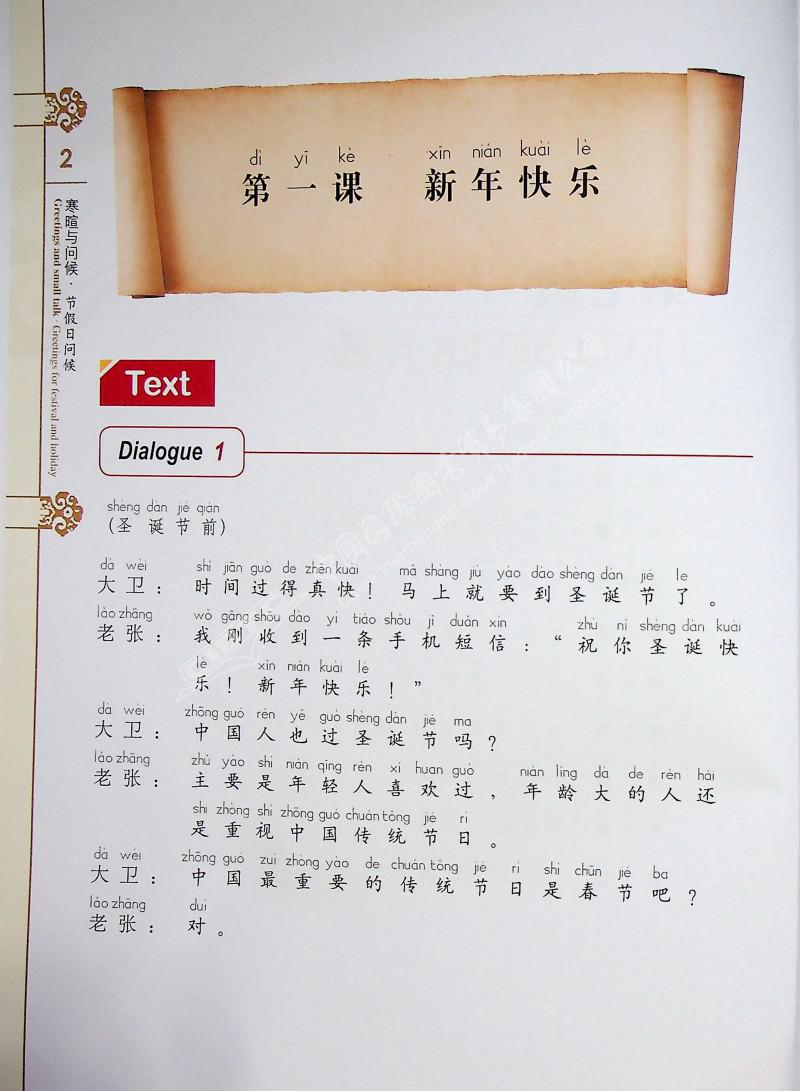 dì yī kè xīn nián kuài lè
第一课 新年快乐
2
寒暄与问候·节假日问候
Greetings and small talk · Greetings for festival and holiday
Text
Dialogue 1
shèng dàn jié qián
(圣诞节前)
dà wèi shí jiān guò de zhēn kuài mǎ shàng jiù yào dào shèng dàn jié le
大卫：时间过得真快！马上就要到圣诞节了。
lǎo zhāng wǒ gāng shōu dào yì tiáo shǒu jī duǎn xìn zhù nǐ shèng dàn kuài
老张：我刚收到一条手机短信：“祝你圣诞快
lè xīn nián kuài lè
乐！新年快乐！”
dà wèi zhōng guó rén yě guò shèng dàn jié ma
大卫：中国人也过圣诞节吗？
lǎo zhāng zhǔ yào shì nián qīng rén xǐ huan guò nián líng dà de rén hái
老张：主要是年轻人喜欢过，年龄大的人还
shì zhòng shì zhōng guó chuán tǒng jié rì
是重视中国传统节日。
dà wèi zhōng guó zuì zhòng yào de chuán tǒng jié rì shì chūn jié ba
大卫：中国最重要的传统节日是春节吧？
lǎo zhāng duì
老张：对。
中国国际图书贸易集团公司
International Book Trading Corporation